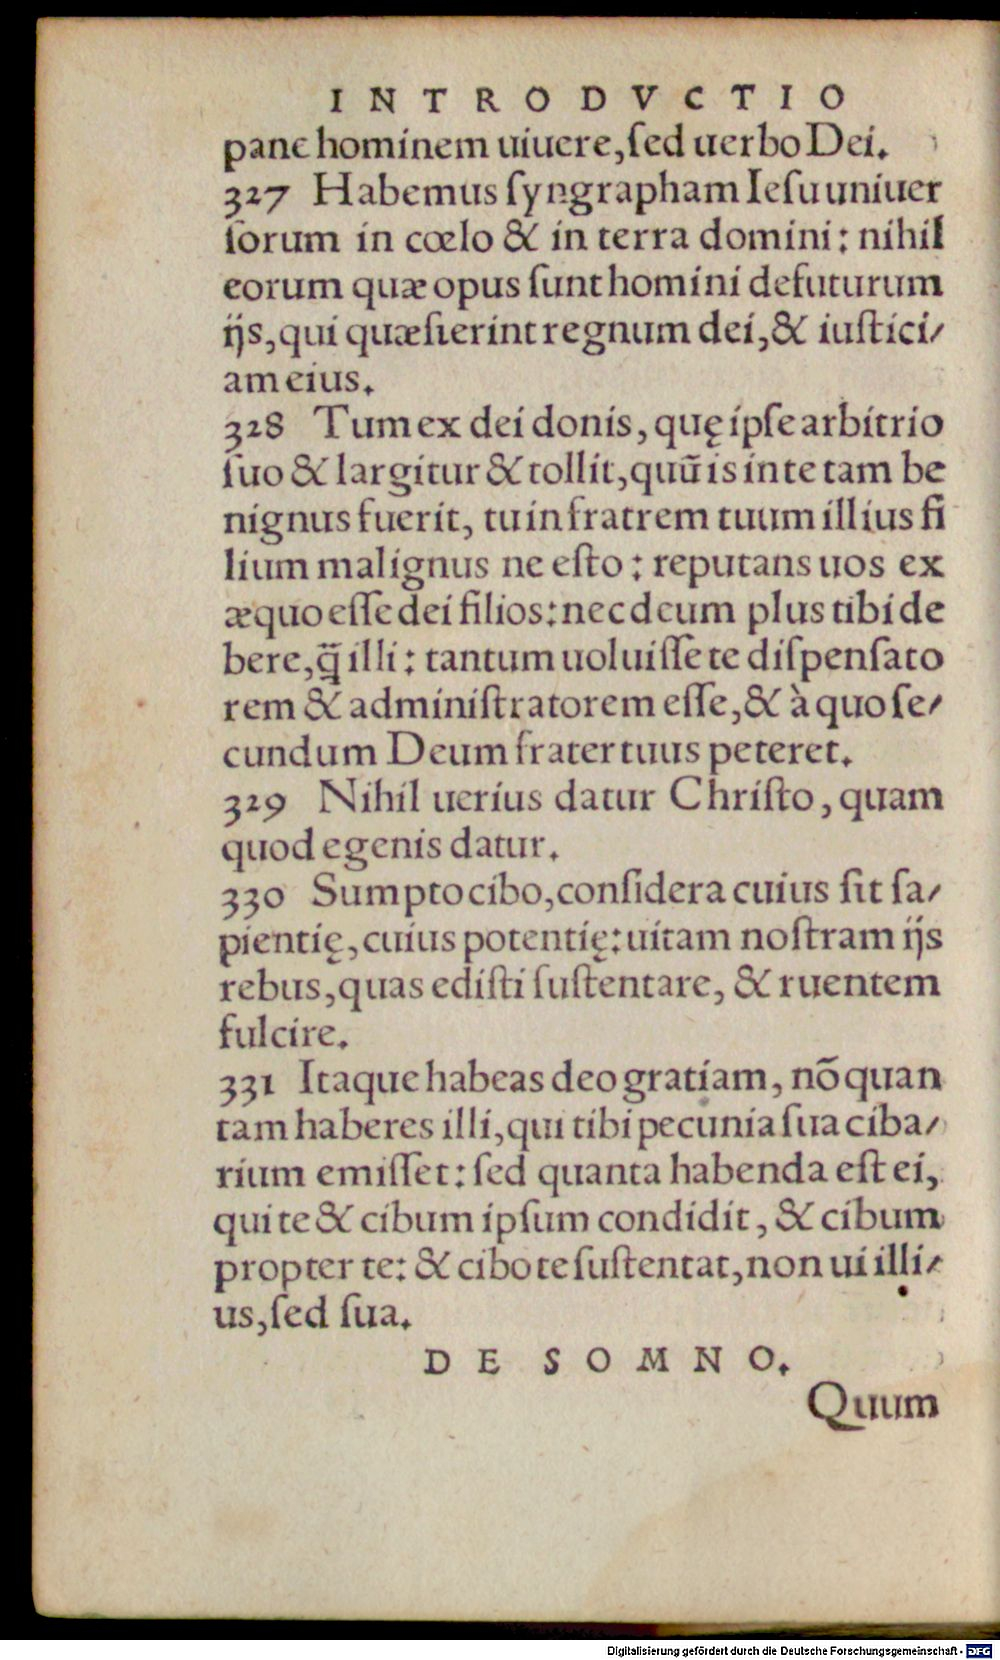 INTRODVCTIO
pane hominem uiuere, ſed uerbo Dei.
327 Habemus ſyngrapham Ieſu uniuer
ſorum in cœlo & in terra domini: nihil
eorum quæ opus ſunt homini defuturum
ijs, qui quæſierint regnum dei, & iuſtici/
am eius.
328 Tum ex dei donis, quę ipſe arbitrio
ſuo & largitur & tollit, quũ is in te tam be
nignus fuerit, tu in fratrem tuum illius fi
lium malignus ne eſto: reputans uos ex
æquo eſſe dei filios: nec deum plus tibi de
bere, q̃ illi: tantum uoluiſſe te diſpenſato
rem & adminiſtratorem eſſe, & à quo ſe/
cundum Deum frater tuus peteret.
329 Nihil uerius datur Chriſto, quam
quod egenis datur.
330 Sumpto cibo, conſidera cuius ſit ſa/
pientię, cuius potentię: uitam noſtram ijs
rebus, quas ediſti ſuſtentare, & ruentem
fulcire.
331 Itaque habeas deo gratiam, nõ quan
tam haberes illi, qui tibi pecunia ſua ciba/
rium emiſſet: ſed quanta habenda eſt ei,
qui te & cibum ipſum condidit, & cibum
propter te: & cibo te ſuſtentat, non ui illi/
us, ſed ſua.
DE SOMNO.
Quum
Digitalisierung gefördert durch die Deutsche Forschungsgemeinschaft - DFG